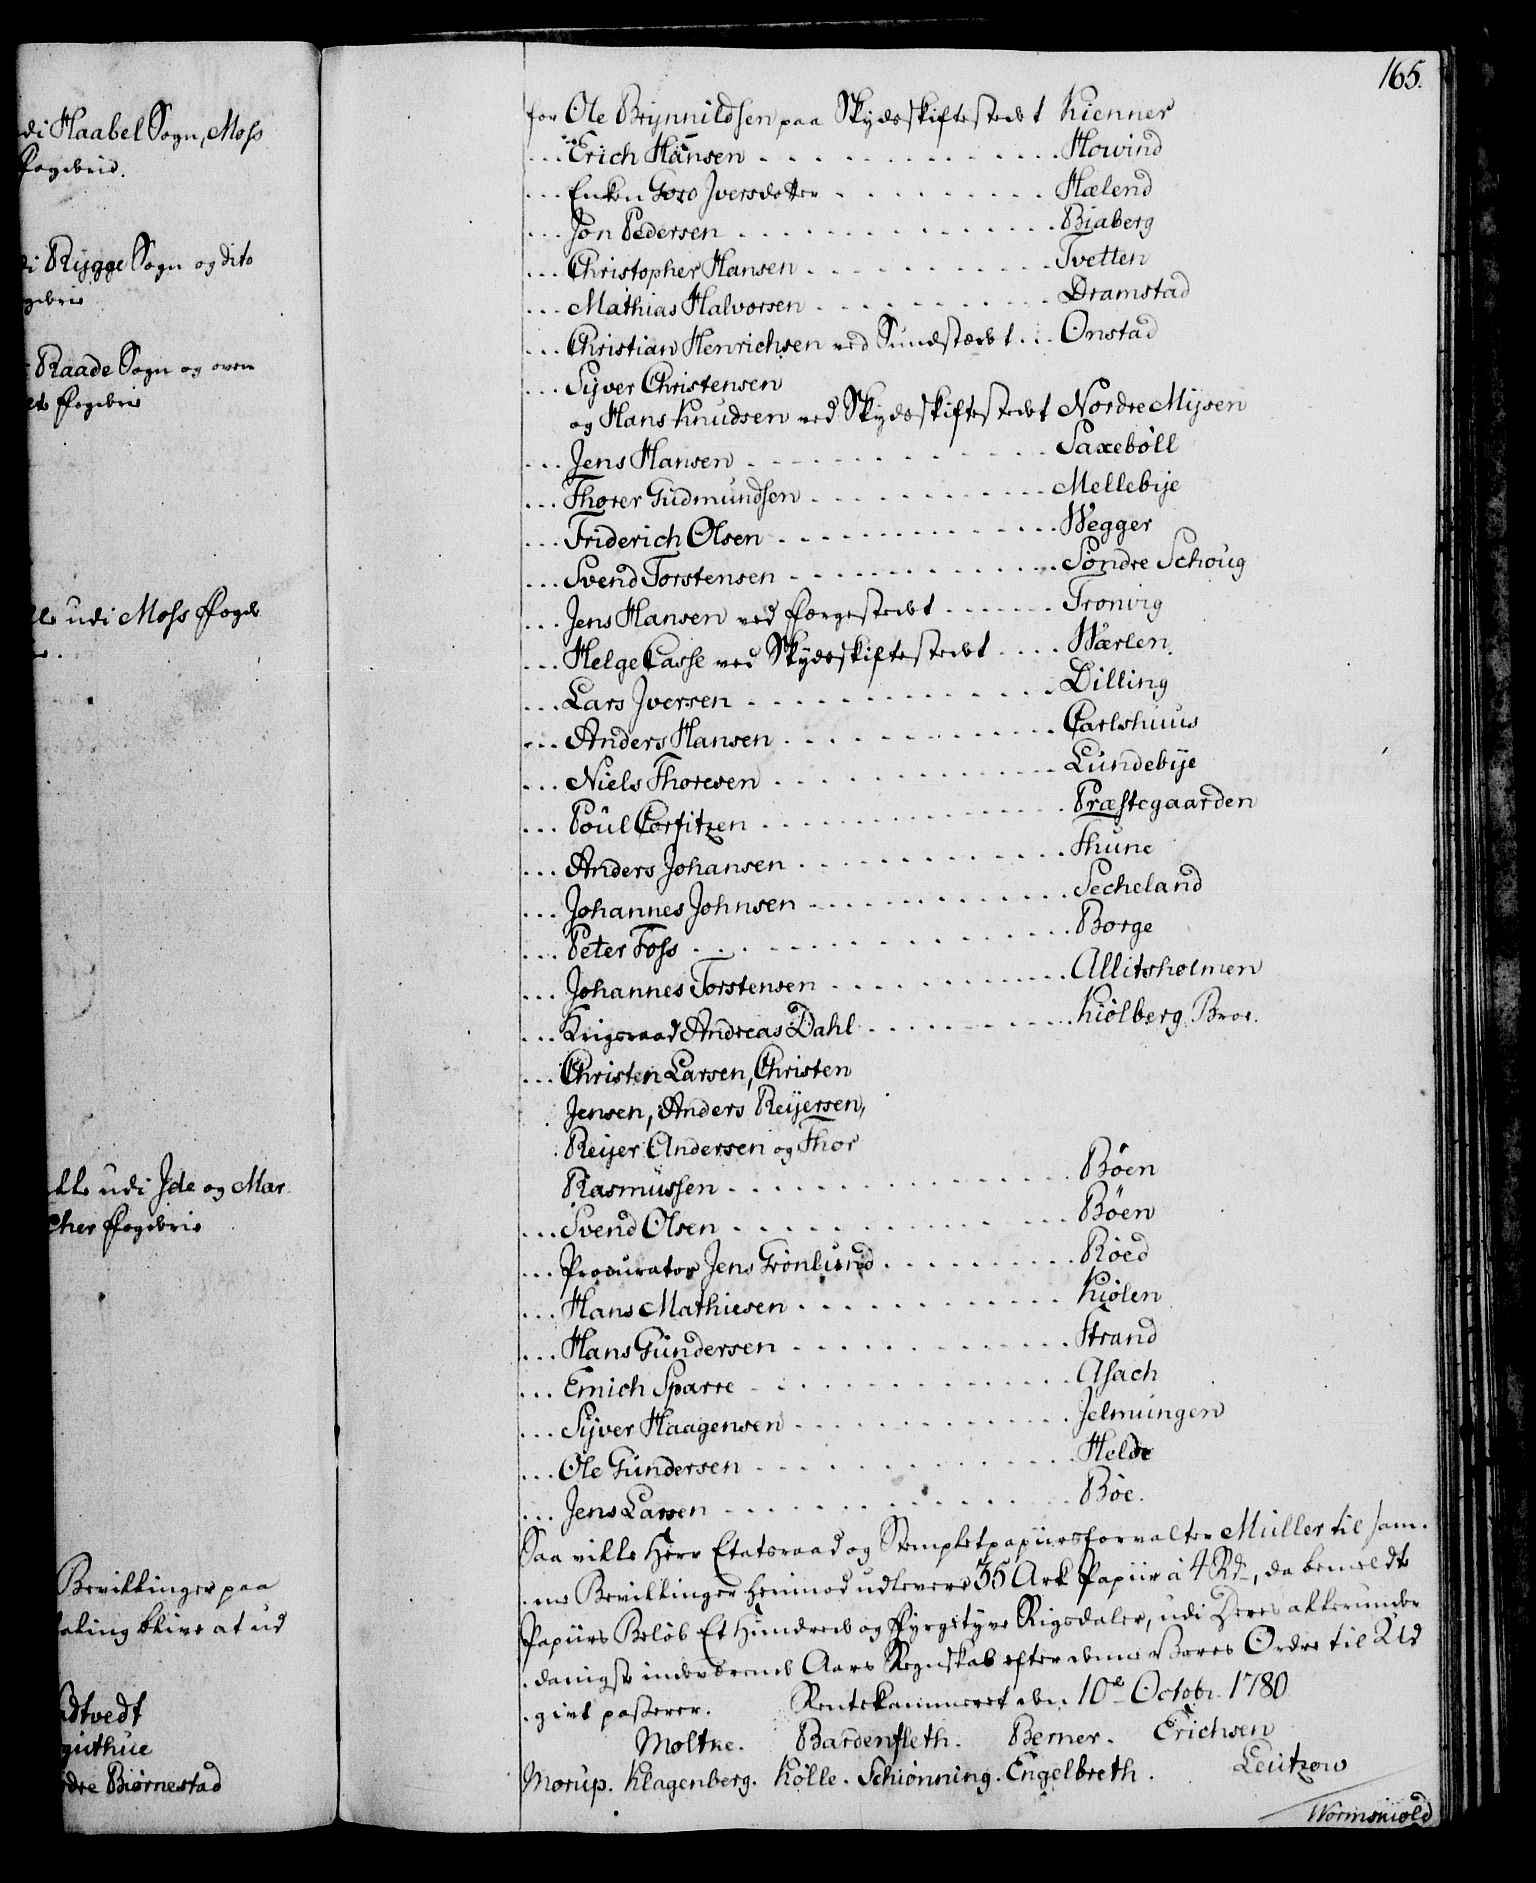 di Haabel Sogn, Moss
Fogderie.
di Rygge Sogn og dito
gderie
Raade Sogn og oven
Fogderie
udi Moss Fogd
udi Ide og Mar
cher Fogderie
Bevillinger paa
taling blive at ud
dtvedt
guthue
dre Biørnestad
165.
for Ole Brynnildsen paa Skydsskiftestedet Kienner
... Erich Hansen . . . Howind
... Enken Goro Iversdatter . . . Hælend
... Jon Pedersen . . . Biaberg
... Christopher Hansen . . . Tvetten
... Mathias Halvorsen . . . Dramstad
... Christian Henrichsen ved Sundstædet ... Onstad
... Syver Christensen
og Hans Knudsen ved Skydsskiftestedet Nordre Mijsen
... Jens Hansen . . . Saxebøll
... Thorer Gudmundsen . . . Mellebye
... Friderich Olsen . . . Wegger
... Svend Torstensen . . . Søndre Schoug
... Jens Hansen ved Færgestedet . . . Tronvig
... Helge Casse ved Skydsskiftestedet . . . Wærlen
... Lars Iversen . . . Dilling
... Anders Hansen . . . Carlshuus
... Niels Thoresen . . . Lundebye
... Poul Corfitzen . . . Præstegaarden
... Anders Johansen . . . Thune
... Johannes Johnsen . . . Secheland
... Peter Foss . . . Borge
... Johannes Torstensen . . . Allitsholmen
... Krigsraad Andreas Dahl . . . Kiølberg Broe.
... Christen Larsen, Christen
Jensen, Anders Reijersen,
Reijer Andersen og Thor
Rasmussen . . . Böen
... Svend Olsen . . . Böen
... Procurator Jens Grönlund . . . Röed
... Hans Mathiesen . . . Kiølen
... Hans Gundersen . . . Strand
... Emich Sparre . . . Asach
... Syver Haagensen . . . Jelmungen
... Ole Gundersen . . . Helde
... Jens Larsen . . . Böe.
Saa ville Herr Etatsraad og Stempletpapiirsforvalter Müller til sam-
me Bevillinger herimod udlevere 35 Ark Papiir à 4 Rd, da bemeldte
Papiirs Beløb Et Hundrede og Fyrgetyve Rigsdaler, udi Deres allerunder
danigst indeværende Aars Regnskab efter denne Vores Ordre til Ud
givt passerer. Rentekammeret den 10de Octobr. 1780
Moltke. Bardenfleth. Berner. Erichsen
Morup. Klagenberg. Kölle. Schiönning. Engelbreth. Leutzow
Wormskiold